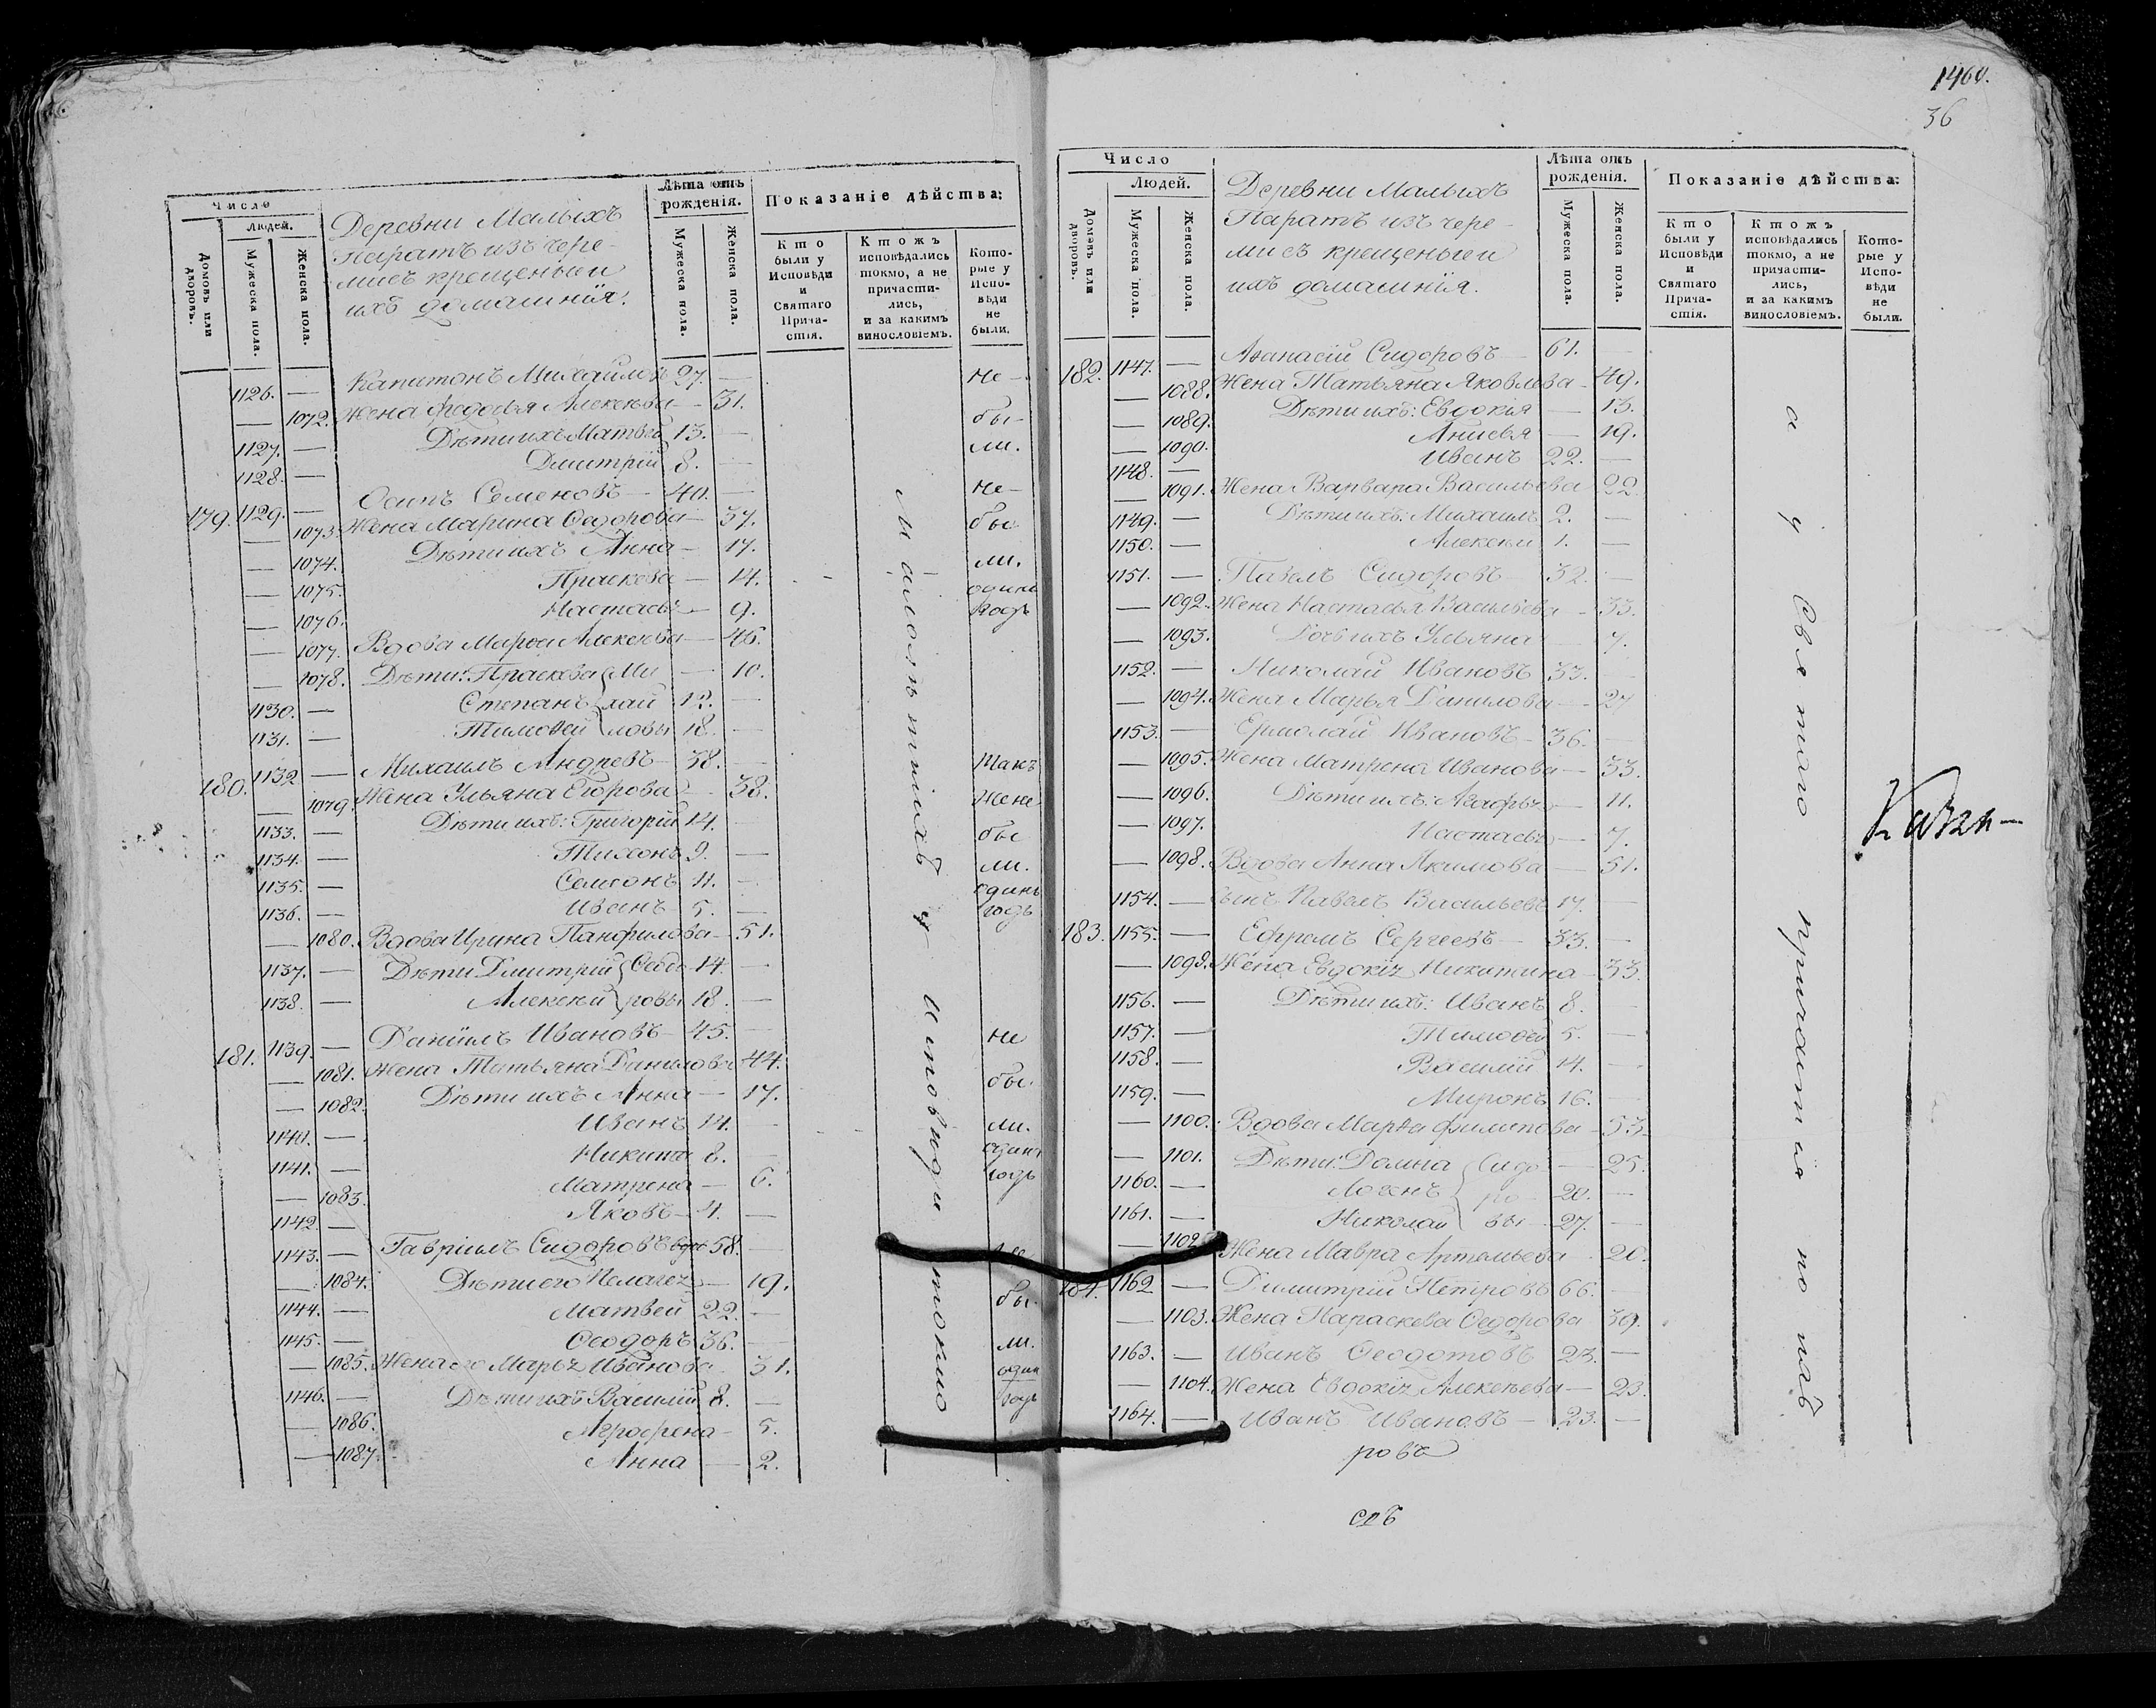 Число
Людей.
Домовъ или дворовъ.
Мужеска пола.
Женска пола.
Деревни Малыхъ
Паратъ изъ чере-
мисъ крещеныеи
ихъ домашнія.
Лѣта отъ рожденія.
Мужеска пола.
Женска пола.
Показаніе дѣйства:
Кто были у Исповѣди и Святаго Прича-стія.
Ктожъ исповѣдались токмо, а не причасти-лись, и за какимъ винословіемъ.
Кото-рые у Испо-вѣди не были.
1126. — Капитонъ Михайловъ 27. — не-
— 1072. Жена Федосья Алексѣева — 31. бы-
1127. — Дѣти ихъ Матвей 13. — ли.
1128. — Дмитрій 8. —
179. 1129. — Осипъ Семеновъ — 40. — не-
— 1073. Жена Марина Ѳедорова — 37. бы
— 1074. Дѣти ихъ Анна — 17. ли.
— 1075. Праскева — 14. одинъ
— 1076. Настасья — 9. годъ
— 1077. Вдова Марѳа Алексѣева — 46.
— 1078. Дѣти: Праскева Ми — 10.
1130. — Степанъ хай 12. —
1131. — Тимоѳей ловы 18. —
180. 1132 — Михаилъ Андреевъ — 38. — Такъ
— 1079. Жена Ульяна Егорова — 38. жене
1133. — Дѣти ихъ: Григорій 14. — бы
1134. — Тихонъ 9. — ли.
1135. — Семіонъ 11. — одинъ
1136. — Иванъ 5. — годъ
— 1080. Вдова Ирина Панфилова — 51.
1137. — Дѣти Дмитрій Ѳедо 14. —
1138. — Алексѣй ровы 18. —
181. 1139. — Даніилъ Ивановъ — 45. — не
— 1081. Жена Татьяна Данилова 44. бы.
— 1082. Дѣти ихъ Анна — 17.
1140. — Иванъ 14. — ли.
1141. — Никита 8. — одинъ
— 1083. Матрена — 6. годъ
1142. — Яковъ — 4. —
1143. — Гавріилъ Сидоровъ вдовъ 58. —
— 1084. Дѣти его Пелагея — 19.
1144. — Матвей 22. — бы.
1145. — Ѳеодоръ 36. — ли.
— 1085. Жена его Марья Иванова 31. один
1146. — Дѣти ихъ Василій 8. — годъ
— 1086. Агрофена — 5.
— 1087. Анна — 2.
и исповѣди токмо
1460.
36
Число
Людей.
Домовъ или дворовъ.
Мужеска пола.
Женска пола.
Деревни Малыхъ
Паратъ изъ чере-
мисъ крещеныеи
ихъ домашнія.
Лѣта отъ рожденія.
Мужеска пола.
Женска пола.
Показаніе дѣйства:
Кто были у Исповѣди и Святаго Прича-стія.
Ктожъ исповѣдались токмо, а не причасти-лись, и за какимъ винословіемъ.
Кото-рые у Испо-вѣди не были.
182. 1147. — Аѳанасій Сидоровъ — 61. —
— 1088. Жена Татьяна Яковлева — 49.
— 1089. Дѣти ихъ: Евдокія — 13.
— 1090. Анисья — 19.
1148. — Иванъ 22. —
— 1091. Жена Варвара Васильева 22.
1149. — Дѣти ихъ: Михаилъ 2. —
1150. — Алексѣи 1. —
1151. — Павелъ Сидоровъ 32. —
— 1092. Жена Настасья Васильева — 33.
— 1093. Дочь ихъ Ульяна — 7.
1152. — Николай Ивановъ 33. —
— 1094. Жена Марья Данилова — 27
1153. — Ермолай Ивановъ — 36. —
— 1095. Жена Матрена Иванова — 33.
— 1096. Дѣти ихъ: Агафья — 11.
— 1097. Настасья — 7.
— 1098. Вдова Анна Якимова — 51.
1154. — сынъ Павелъ Васильевъ 17. —
183. 1155. — Ефремъ Сергеевъ — 33. —
— 1099. Жена Евдокія Никитина — 33.
1156. — Дѣти ихъ: Иванъ 8. —
1157. — Тимоѳей 5. —
1158. — Василій 14. —
1159. — Миронъ 16. —
— 1100. Вдова Марѳа Филипова — 53.
— 1101. Дѣти: Домна Сидо — 25.
1160. — Логенъ ро 20. —
1161. — Николай вы 27. —
— 1102. Жена Мавра Артемьева 20.
184. 1162 — Димитрій Петровъ 66. —
— 1103. Жена Параскева Ѳедорова 39.
1163. — Иванъ Ѳеодотовъ 23. —
— 1104. Жена Евдокія Алексѣева — 23.
1164. — Иванъ Ивановъ — 23. —
а у Святаго причастія